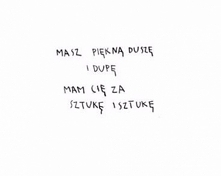 MASZ PIĘKNĄ DUSZĘ
I DUPĘ
MAM CIĘ ZA
SZTUKĘ I SZTUKĘ